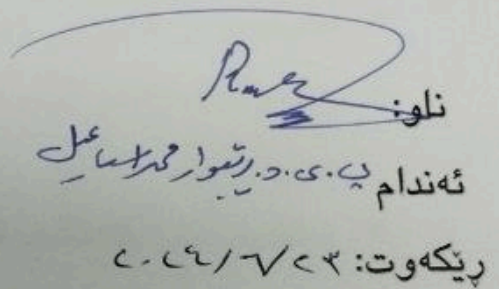 ناو:
ئەندام پ.ی.د. ڕێبوار محمد اسماعیل
ڕێکەوت: ٢٠٢٤/٦/٢٣